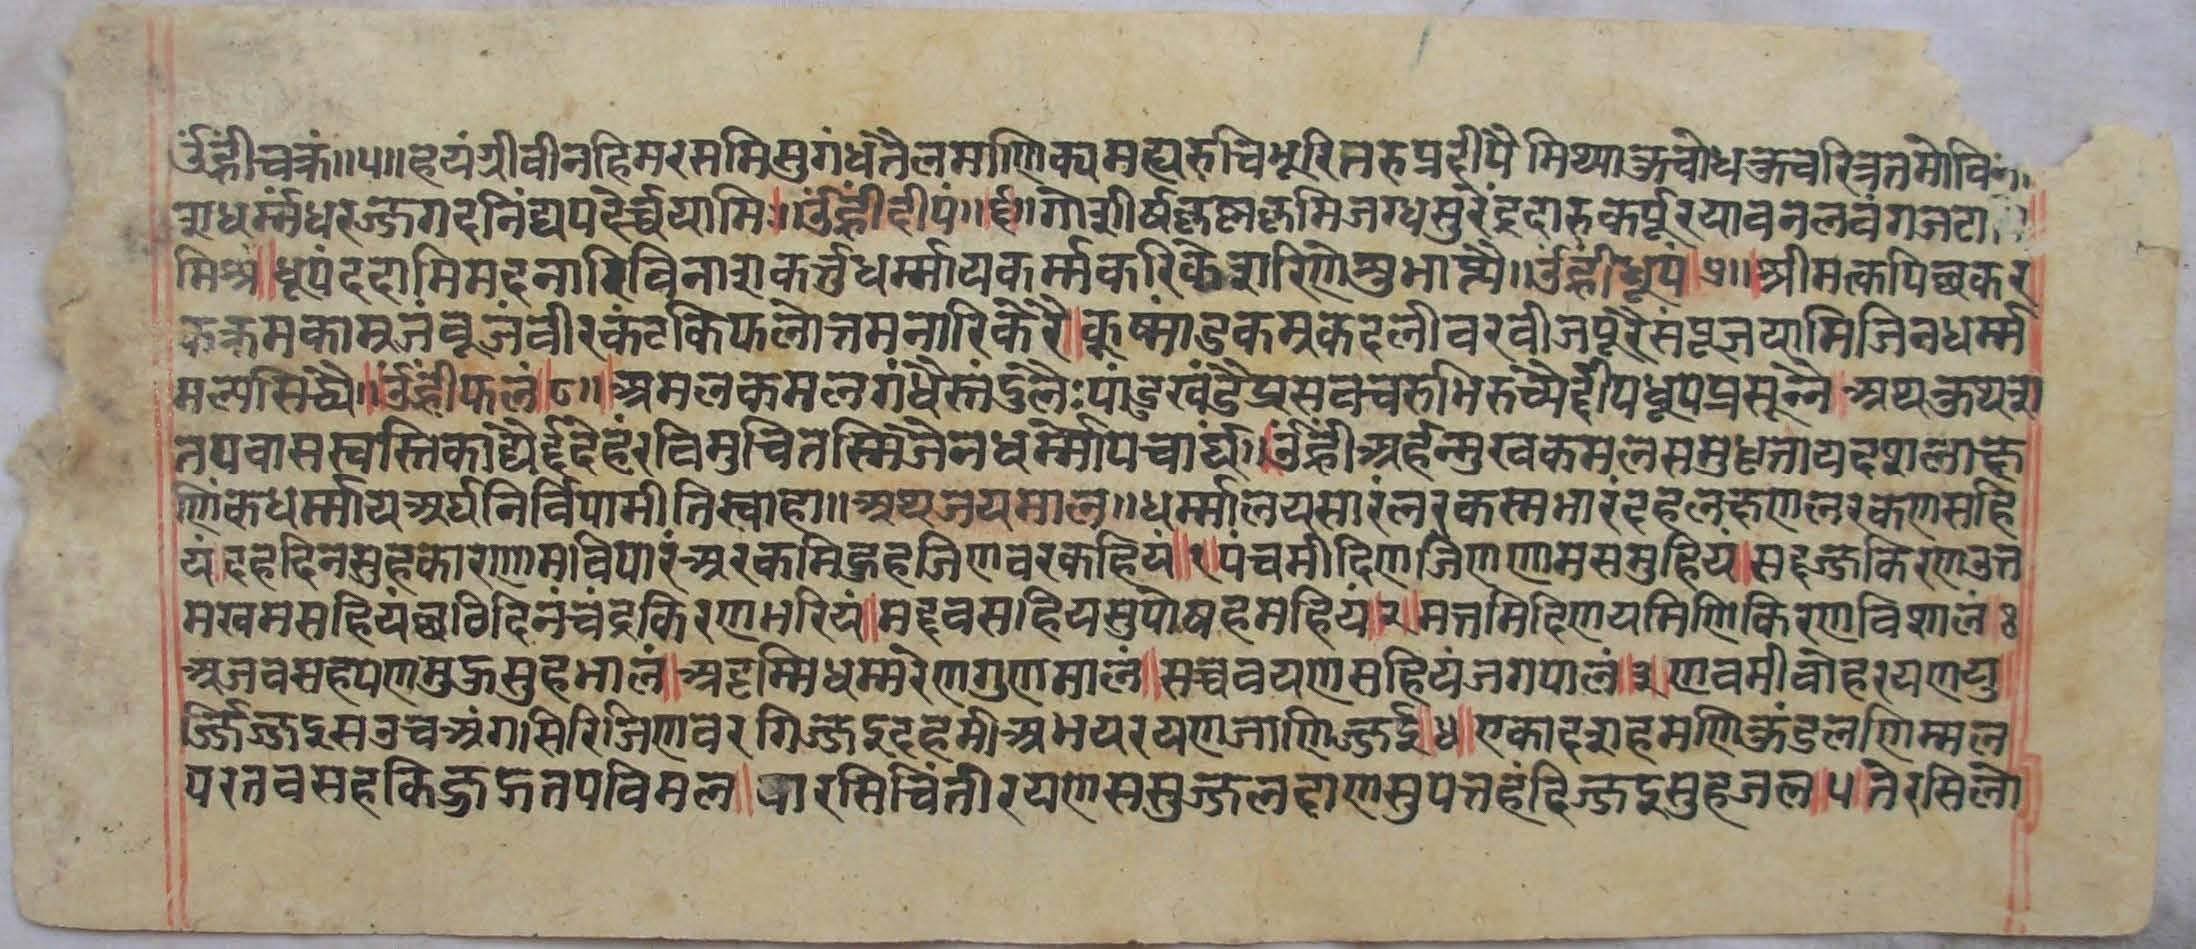 ॐ ह्रीं चरुकं ॥५॥ हयंग्रीवीनहिमरसमिसुगंधतैलमाणिक्यमह्यरुचिभूरितरुप्रदीपै मिथ्याऊबोधऊचरित्रतमोवि
शधर्म्मधरज्जगदनिंद्यपदेर्च्चयामि ॥ ॐ ह्रीं दीपं ॥६॥ गोशीर्षकृष्णकृमिजग्धसुरेंद्रदारुकर्पूरयावनलवंगजटा
मिश्र ॥ धूपं ददामि मदनारिविनाशकर्त्तुधर्म्मायकर्म्मकरिकेशरिणेसुभाप्त्यै ॥ ॐ ह्रीं धूपं ॥७॥ श्रीमत्कपिछकर
फक्रमकाम्रजंबूजंवीरकंटकिफलोत्तमनारिकेरै ॥ कूष्मांडकम्रकदलीवरवीजपूरैसंपूजयामि जिनधर्म्म
मलपसिद्ध्यै ॥ ॐ ह्रीं फलं ॥८॥ अमलकमलगंधैस्तंडुलैः पांडुखंडैप्रसवचरुमिरुच्यैर्द्दीपधूपप्रसून्नै अथऊथश
तपवासस्वस्तिकाद्यैर्हदेहंरविमुचितस्मिजैनधर्म्मोपचार्घ्यं ॥ ॐ ह्रीं अर्हन्मुखकमलसमुद्दत्तायदशलाक्ष
णिंकधर्म्माय अर्घनिर्विपामीति स्वाहा ॥ अथ जयमाल ॥ धर्म्मालयसारंलरकस्मभारंदहलक्षणलरकेणसहि
यं दहदिनसुहकारणमविपारंअरकमिऊहजिणवरकहियं ॥१॥ पंचमीदिणजिणणामसमुहियं ॥ सहज्जकिरणउत्त
मखमसहियं छठिदिनंचंद्रकिरणभरियं ॥ मद्दवसहियसुपोषहमहियं ॥२॥ सत्तमिदिणयमिणिकिरणविशालं
अजवसहपणमुऊसुहभालं ॥ अट्टम्मिधम्मरेणगुणमालं ॥ सच्चवयणसहियंजगपालं ॥३॥ णवमीवोहरयणयु
र्ज्जिज्जइसउचअंगसिरिजिणवरगिज्जइदहमीअभयरयणजाणिज्जइ ॥४॥ एकादशहमणिऊंडलणिम्मल
परतवसहकिज्जऊतपविमल ॥ वारसिचिंतीरयणससुज्जलदाणसुपत्तहंदिज्जइसुहजल ॥५॥ तेरसिलो